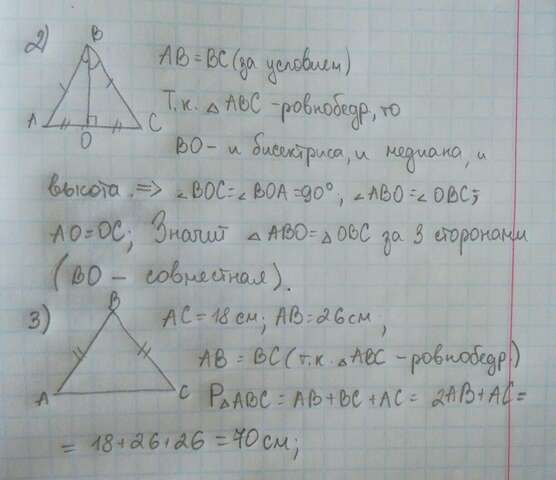 2)
B
A
O
C
AB = BC (за условием)
Т.к. △ABC - ровнобедр, то
BO - и бисектриса, и медиана, и
высота. => ∠BOC = ∠BOA = 90°, ∠ABO = ∠OBC;
AO = OC; Значит △ABO = △OBC за 3 сторонами
(BO - совместная).
3)
B
A
C
AC = 18 см; AB = 26 см;
AB = BC (т.к. △ABC - ровнобедр.)
P△ABC = AB + BC + AC = 2AB + AC =
= 18 + 26 + 26 = 70 см;